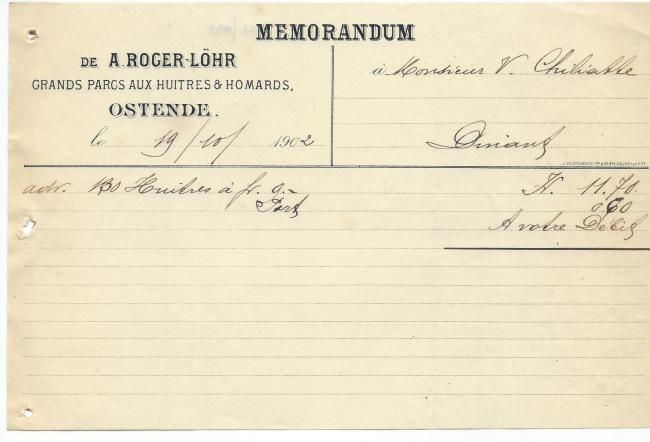 MEMORANDUM
DE A. ROGER-LÖHR
GRANDS PARCS AUX HUITRES & HOMARDS,
OSTENDE.
le 19/10/ 1902
à Monsieur V. Chiliatte
Dinant
adv. 130 Huitres à fr. 9.- fr. 11.70.
Port 0.60
A votre Débit